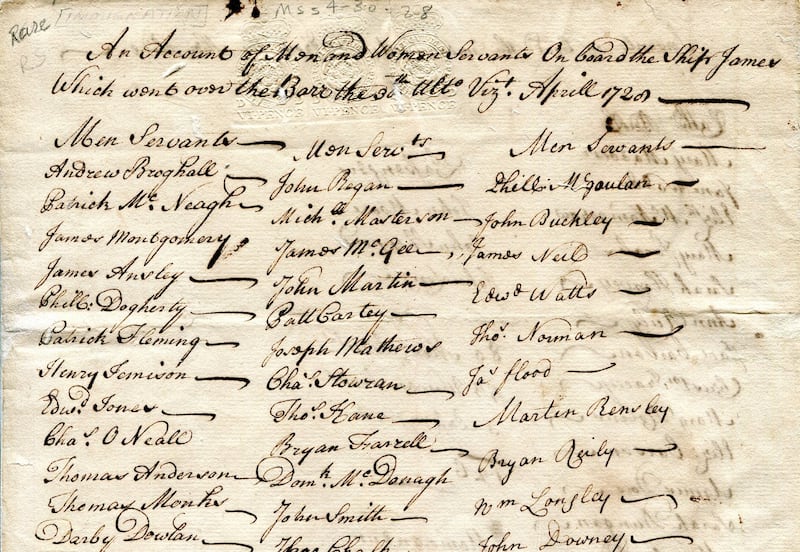 Rare
Mss 4-30-28
An Account of Men and Women Servants On board the Ship James
Which went over the Barr the 30th Ulto Vizt. Aprill 1728
Men Servants
Andrew Broghall
Patrick Mc. Neagh
James Montgomery
James Ansley
Phill: Dogherty
Patrick Fleming
Henry Jemison
Edwd. Jones
Chas. O Neall
Thomas Anderson
Thomas Monks
Darby Dowlan
Men Servts
John Regan
Michll Masterson
James Mc. Gee
John Martin
Patt Cartey
Joseph Mathews
Chas. Stowran
Thos. Kane
Bryan Farrell
Domk. Mc. Donagh
John Smith
Men Servants
Phill: McGaulan
John Buckley
James Neild
Edwd Watts
Thos. Norman
Jas flood
Martin Rensley
Bryan Reily
Wm Longley
John Downey